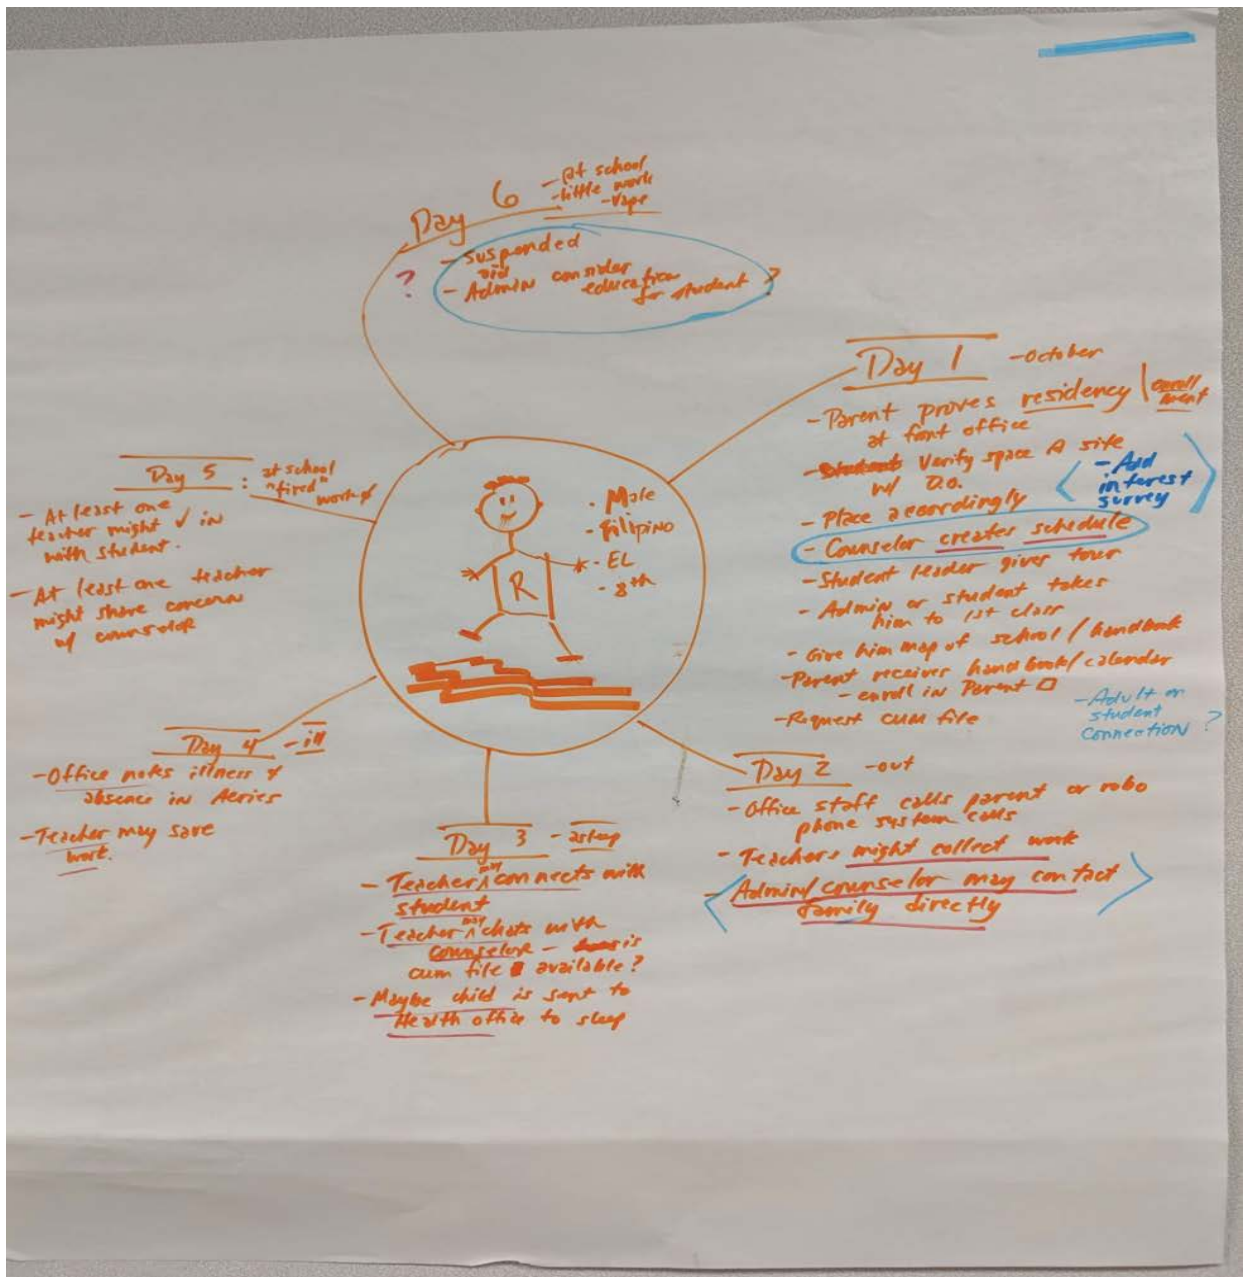 Day 6
- At school
- little work
- Vape
- suspended
- Admin did consider
education
for student ?
?
Day 1 - October
- Parent proves residency | enroll
ment
at front office
- Verify space @ site
w/ D.O.
- Add
interest
survey
- Place accordingly
- Counselor creates schedule
- Student leader gives tour
- Admin or student takes
him to 1st class
- Give him map of school / handbook
- Parent receives handbook / calendar
- enroll in Parent □
- Request cum file
- Adult or
student
connection ?
Day 2 - out
- Office staff calls parent or robo
phone system calls
- Teachers might collect work
- Admin/counselor may contact
family directly
Day 3 - asleep
- Teacher may connects with
student
- Teacher may chats with
counselor - is
cum file available?
- Maybe child is sent to
Health office to sleep
Day 4 - ill
- Office notes illness &
absence in Aeries
- Teacher may save
work.
Day 5 : at school
"tired"
work ∅
- At least one
teacher might ✓ in
with student.
- At least one teacher
might share concern
w/ counselor
R
- Male
- Filipino
- EL
- 8th